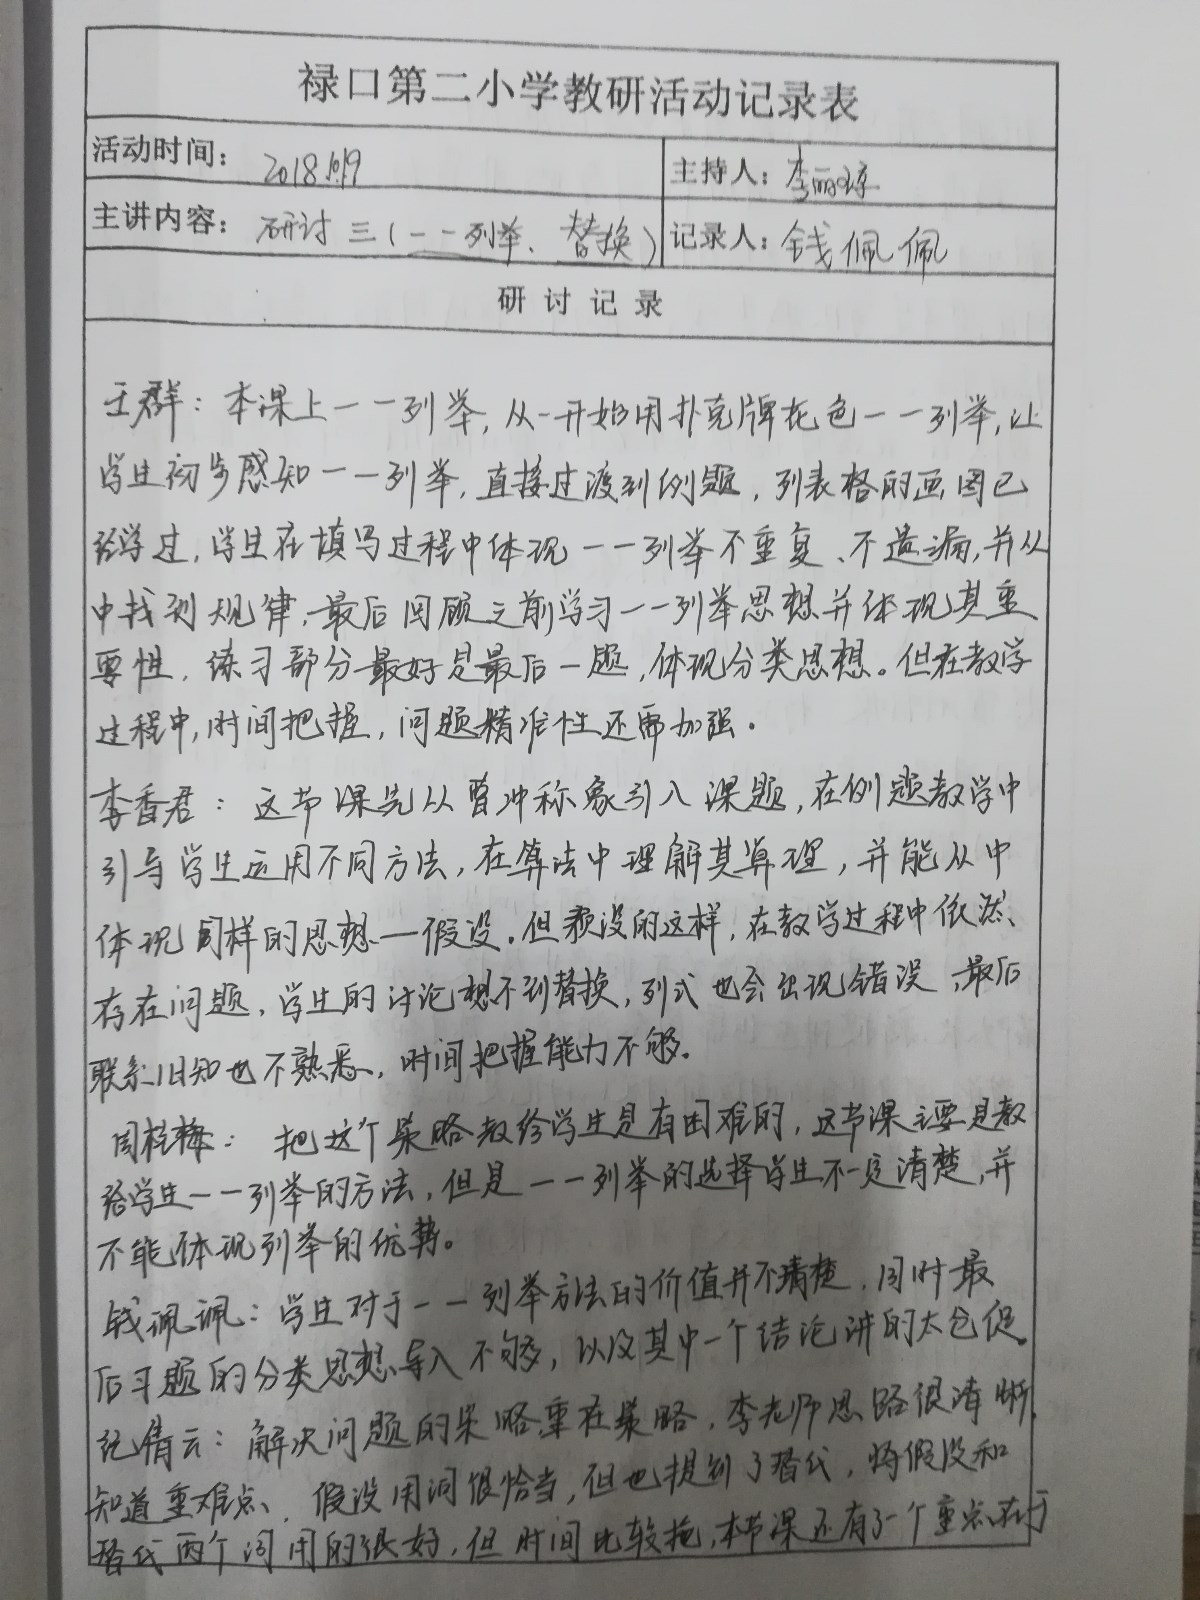 禄口第二小学教研活动记录表
活动时间： 2018.10.19 主持人：李丽琼
主讲内容： 研讨三（一一列举、替换） 记录人：钱佩佩
研讨记录
王群：本课上一一列举，从一开始用扑克牌花色一一列举，让
学生初步感知一一列举，直接过渡到例题，列表格的画图已
经学过，学生在填写过程中体现一一列举不重复、不遗漏，并从
中找到规律，最后回顾之前学习一一列举思想并体现其重
要性，练习部分最好是最后一题，体现分类思想。但在教学
过程中，时间把握，问题精准性还需加强。
李香君：这节课先从曹冲称象引入课题，在例题教学中
引导学生运用不同方法，在算法中理解其算理，并能从中
体现同样的思想—假设。但预设的这样，在教学过程中依然
存在问题，学生的讨论想不到替换，列式也会出现错误，最后
联系旧知也不熟悉，时间把握能力不够。
周桂梅：把这个策略教给学生是有困难的，这节课主要是教
给学生一一列举的方法，但是一一列举的选择学生不一定清楚，并
不能体现列举的优势。
钱佩佩：学生对于一一列举方法的价值并不清楚，同时最
后习题的分类思想导入不够，以及其中一个结论讲的太仓促。
纪倩云：解决问题的策略重在策略，李老师思路很清晰，
知道重难点，假设用词很恰当，但也提到了替代，将假设和
替代两个词用的很好，但时间比较拖，本节课还有了一个重点在于